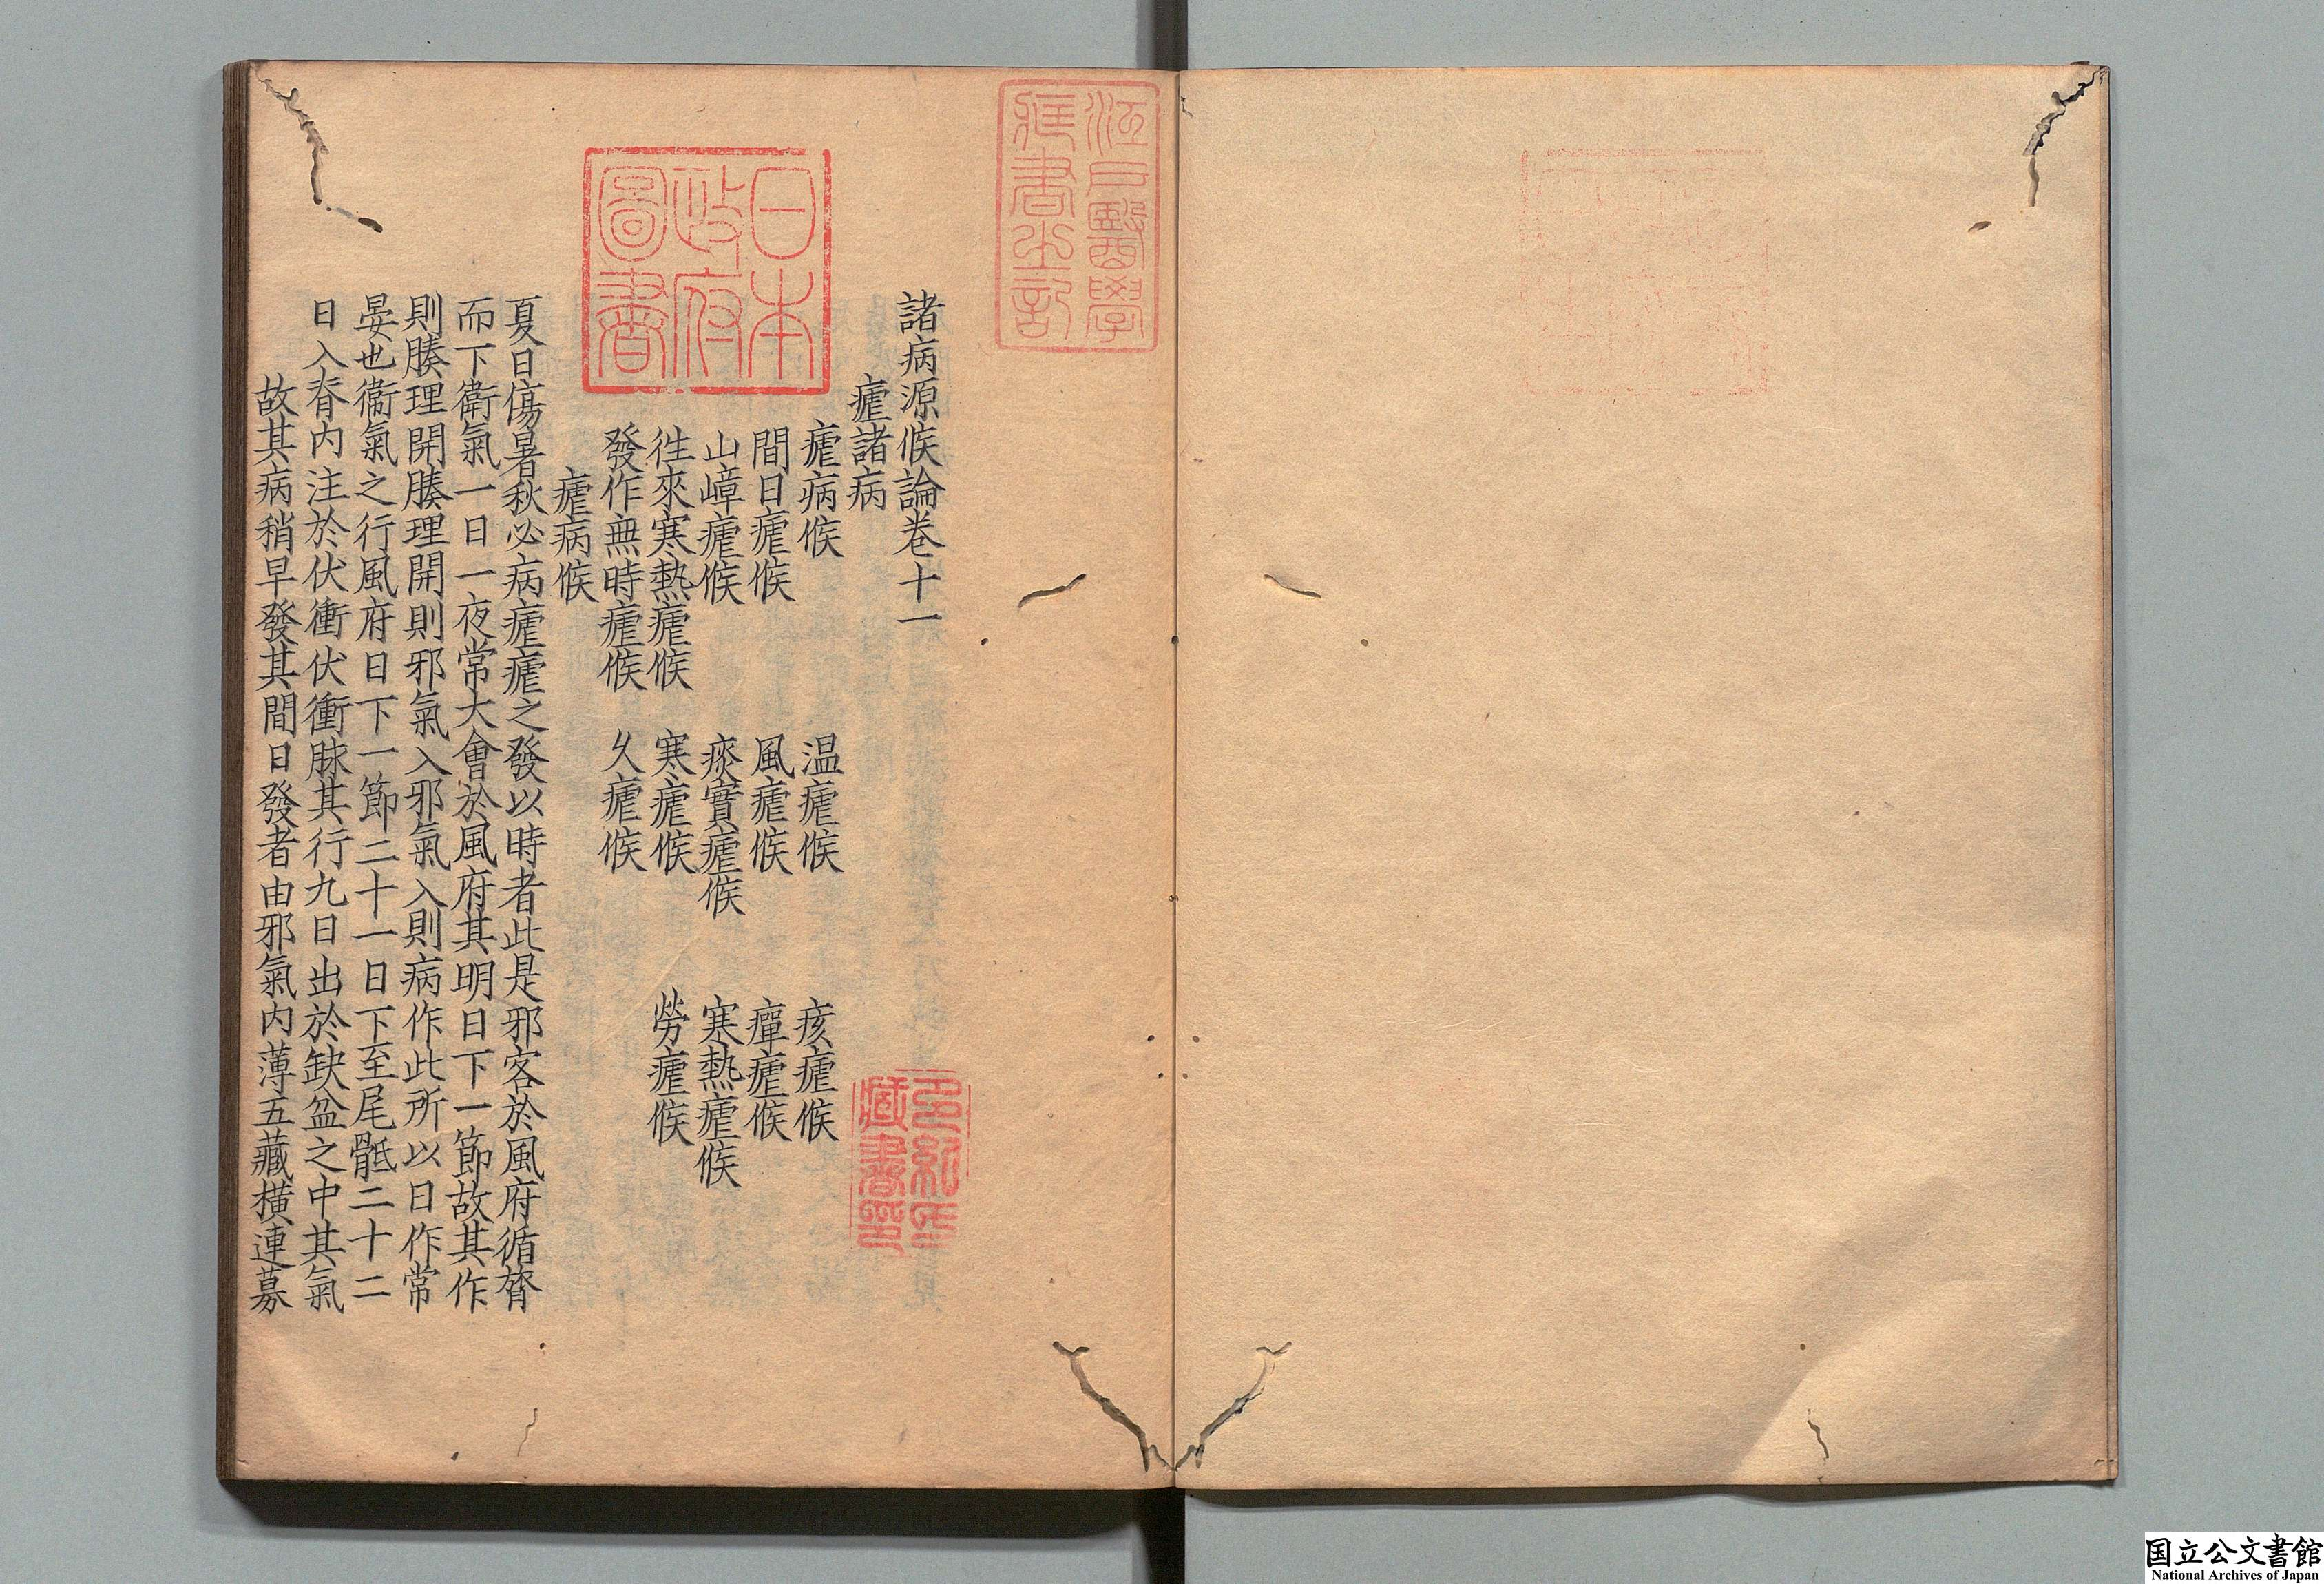 諸病源候論卷十一
瘧諸病
瘧病候 温瘧候 痎瘧候
間日瘧候 風瘧候 癉瘧候
山嶂瘧候 痰實瘧候 寒熱瘧候
往來寒熱瘧候 寒瘧候 勞瘧候
發作無時瘧候 久瘧候
瘧病候
夏日傷暑秋必病瘧瘧之發以時者此是邪客於風府循膂
而下衛氣一日一夜常大會於風府其明日下一節故其作
則腠理開腠理開則邪氣入邪氣入則病作此所以日作常
晏也衞氣之行風府日下一節二十一日下至尾骶二十二
日入脊内注於伏衝伏衝脉其行九日出於缺盆之中其氣
故其病稍早發其間日發者由邪氣内薄五藏橫連募
江戸醫學
藏書之記
日本
政府
圖書
多紀氏
藏書印
国立公文書館
National Archives of Japan